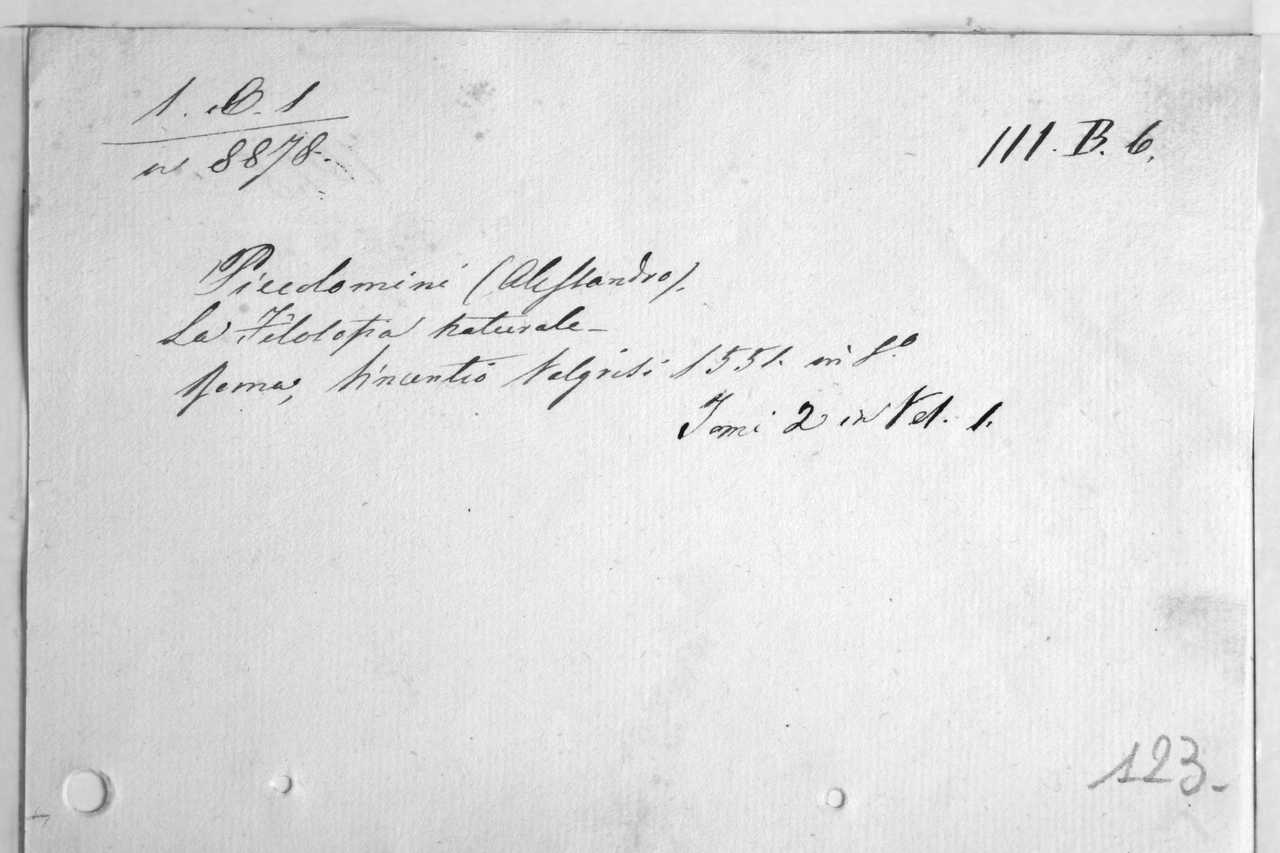 1. B. 1
n 8878.
III. B. 6.
Piccolomini (Alessandro).
La Filosofia naturale
Roma, Vincentio Valgrisi 1551. in 8.°
Tomi 2 in Vol. 1.
123.